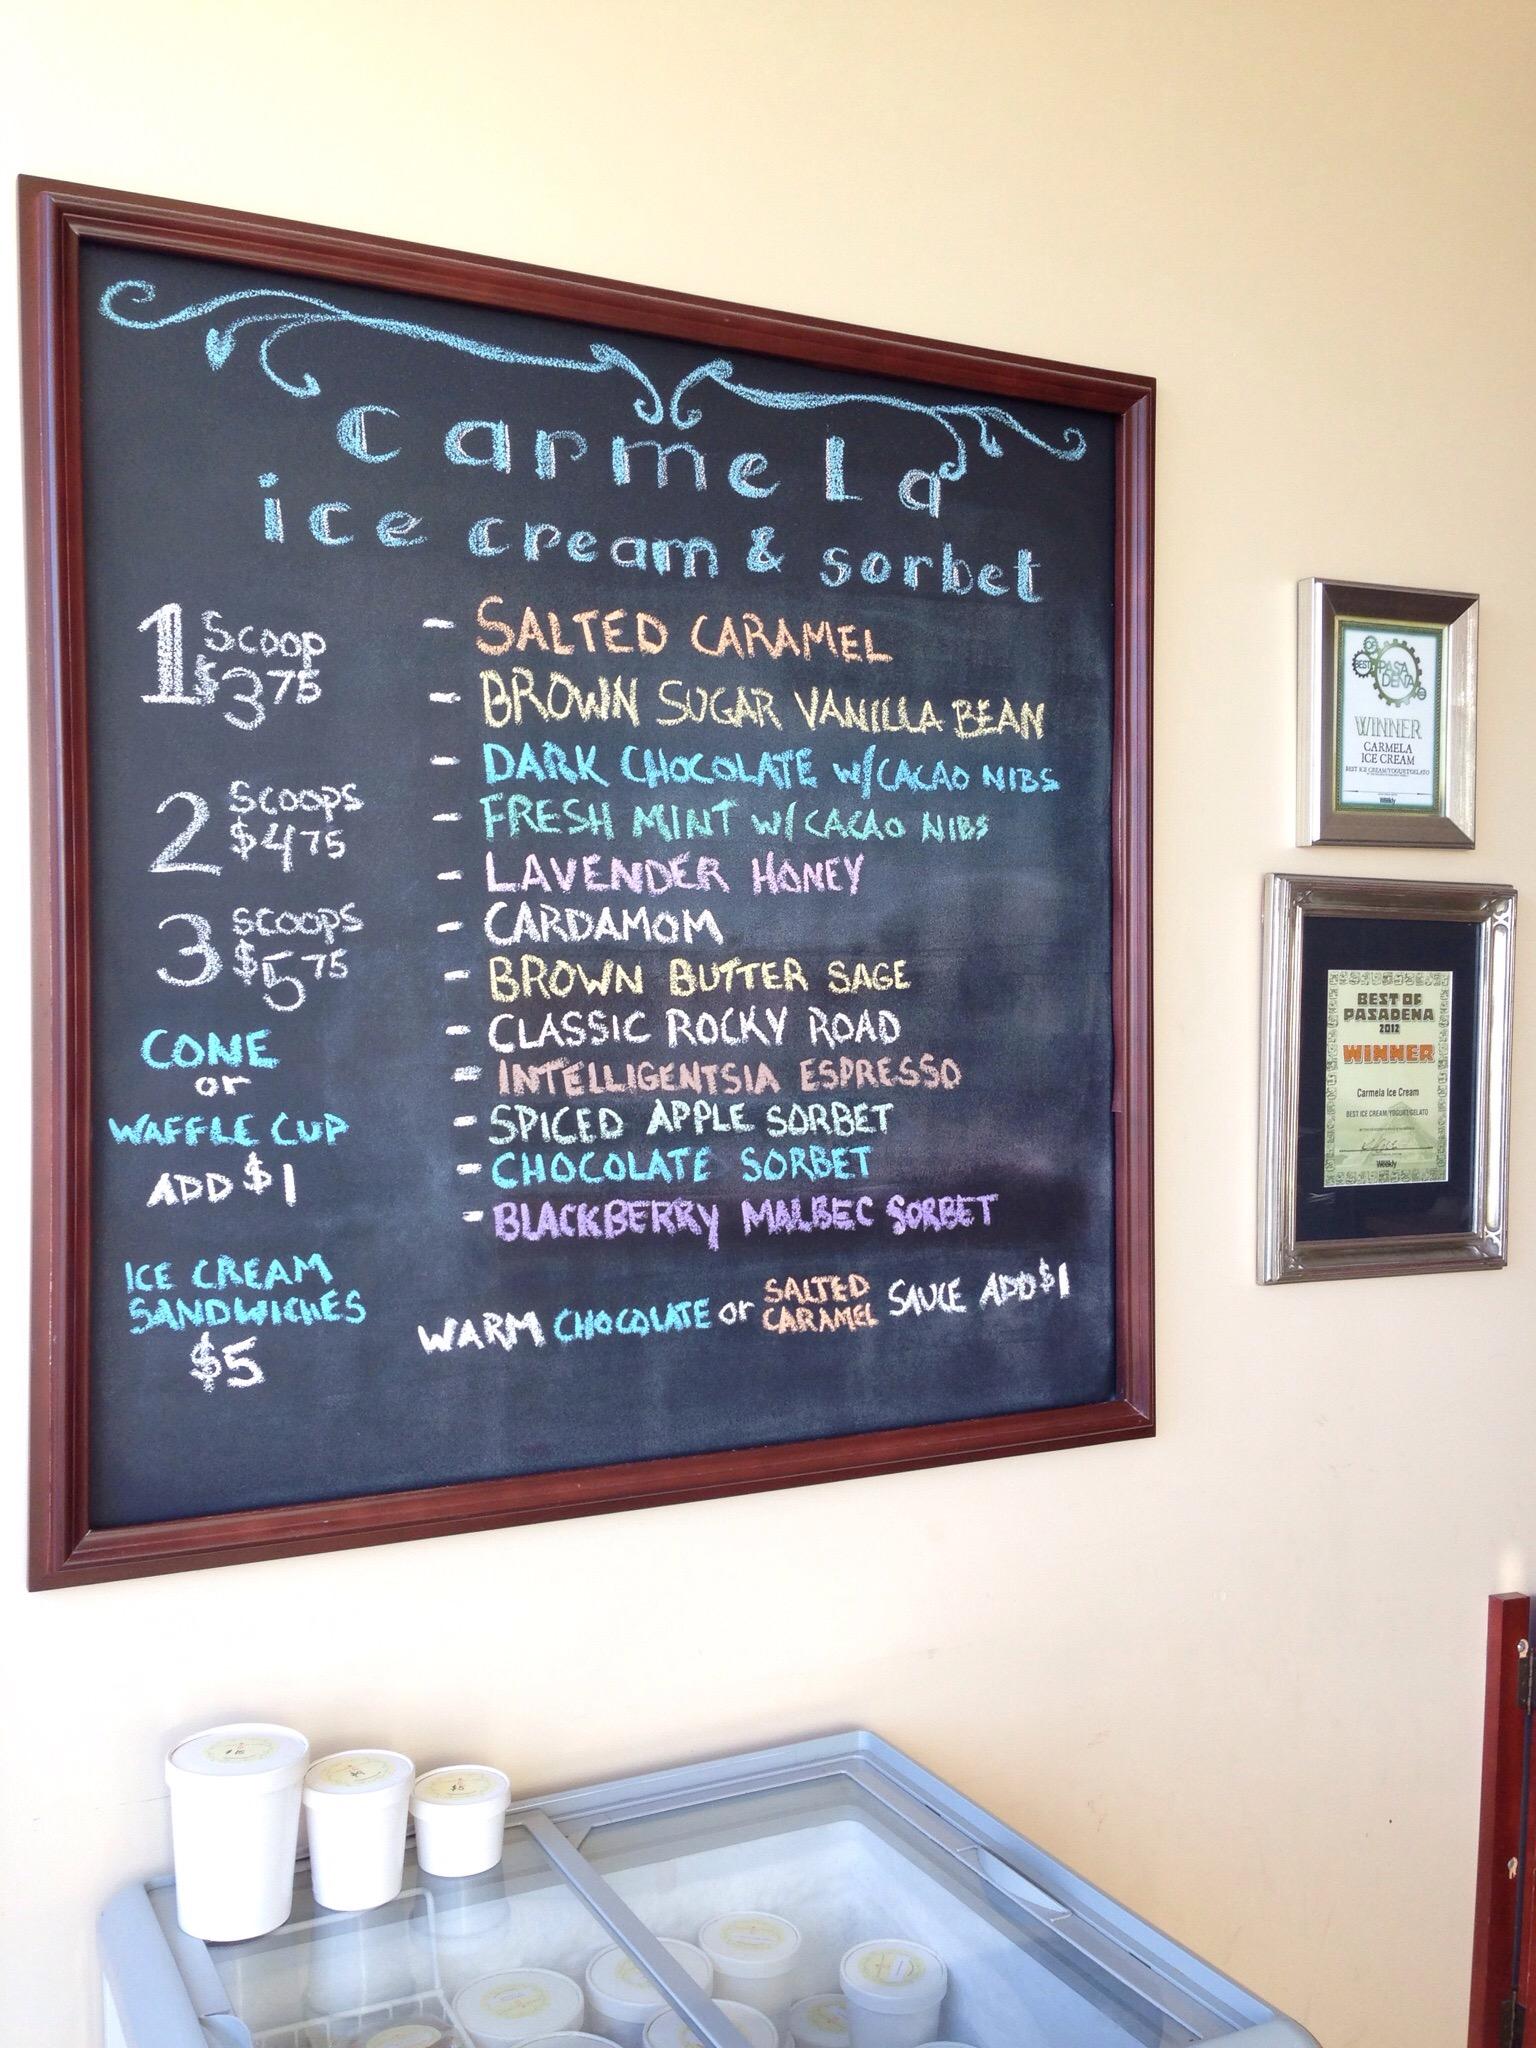 carmela
ice cream & sorbet
1 SCOOP
$3.75
2 SCOOPS
$4.75
3 SCOOPS
$5.75
CONE
or
WAFFLE CUP
ADD $1
ICE CREAM
SANDWICHES
$5
- SALTED CARAMEL
- BROWN SUGAR VANILLA BEAN
- DARK CHOCOLATE W/CACAO NIBS
- FRESH MINT W/CACAO NIBS
- LAVENDER HONEY
- CARDAMOM
- BROWN BUTTER SAGE
- CLASSIC ROCKY ROAD
- INTELLIGENTSIA ESPRESSO
- SPICED APPLE SORBET
- CHOCOLATE SORBET
- BLACKBERRY MALBEC SORBET
WARM CHOCOLATE or SALTED CARAMEL SAUCE ADD $1
BEST
PASA
DENA
WINNER
CARMELA
ICE CREAM
BEST ICE CREAM/YOGURT/GELATO
Weekly
BEST OF
PASADENA
2012
WINNER
Carmela Ice Cream
BEST ICE CREAM/YOGURT/GELATO
Weekly
$5